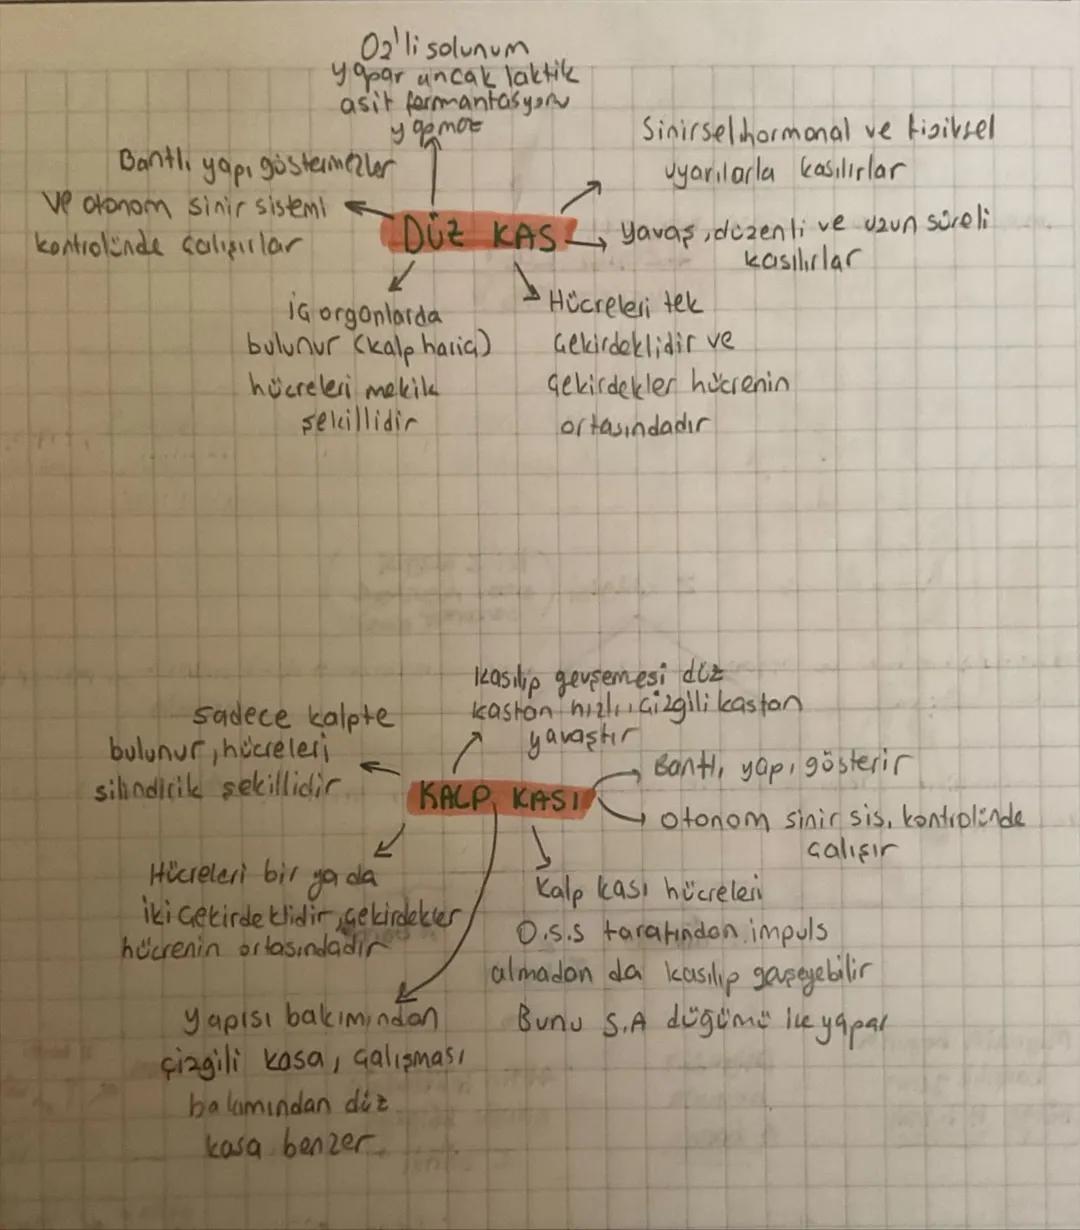 O2'li solunum
yapar ancak laktik
asit fermantasyonu
yapmaz
Sinirsel, hormonal ve fiziksel
uyarılarla kasılırlar
Bantlı yapı göstermezler
ve otonom sinir sistemi
kontrolünde çalışırlar
DÜZ KAS
yavaş, düzenli ve uzun süreli
kasılırlar
iç organlarda
bulunur (kalp hariç)
hücreleri mekik
şekillidir
Hücreleri tek
çekirdeklidir ve
çekirdekler hücrenin
ortasındadır
Kasılıp gevşemesi düz
kastan hızlı, çizgili kastan
yavaştır
sadece kalpte
bulunur, hücreleri
silindirik şekillidir.
KALP KASI
Bantlı yapı gösterir
otonom sinir sis. kontrolünde
çalışır
Hücreleri bir ya da
iki çekirdeklidir, çekirdekler
hücrenin ortasındadır
Kalp kası hücreleri
O.S.S tarafından impuls
almadan da kasılıp gevşeyebilir
Bunu S.A düğümü ile yapar
yapısı bakımından
çizgili kasa, çalışması
bakımından düz
kasa benzer.